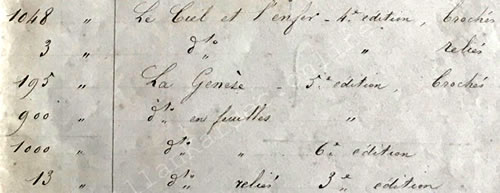 1048 " Le Ciel et l'enfer - 4e edition, Brochés
3 " dto " reliés
195 " La Genèse - 5e edition, Brochés
900 " dto en feuilles "
1000 " dto " 6e edition
13 " dto reliés 3e edition